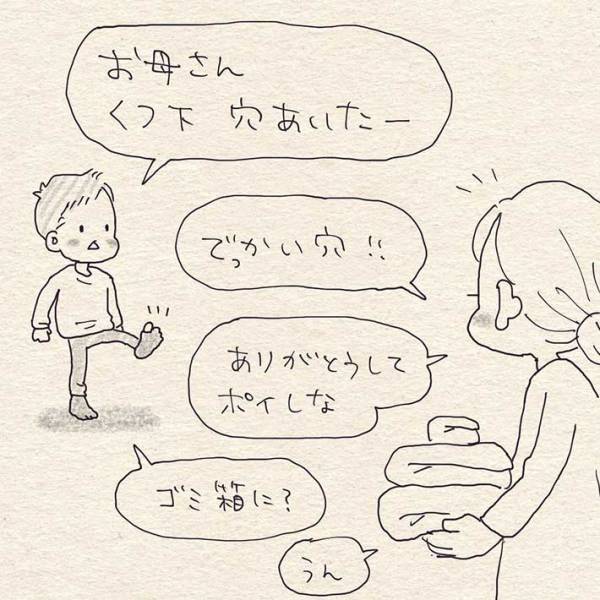 お母さん
くつ下 穴あいたー
でっかい穴!!
ありがとうして
ポイしな
ゴミ箱に?
うん